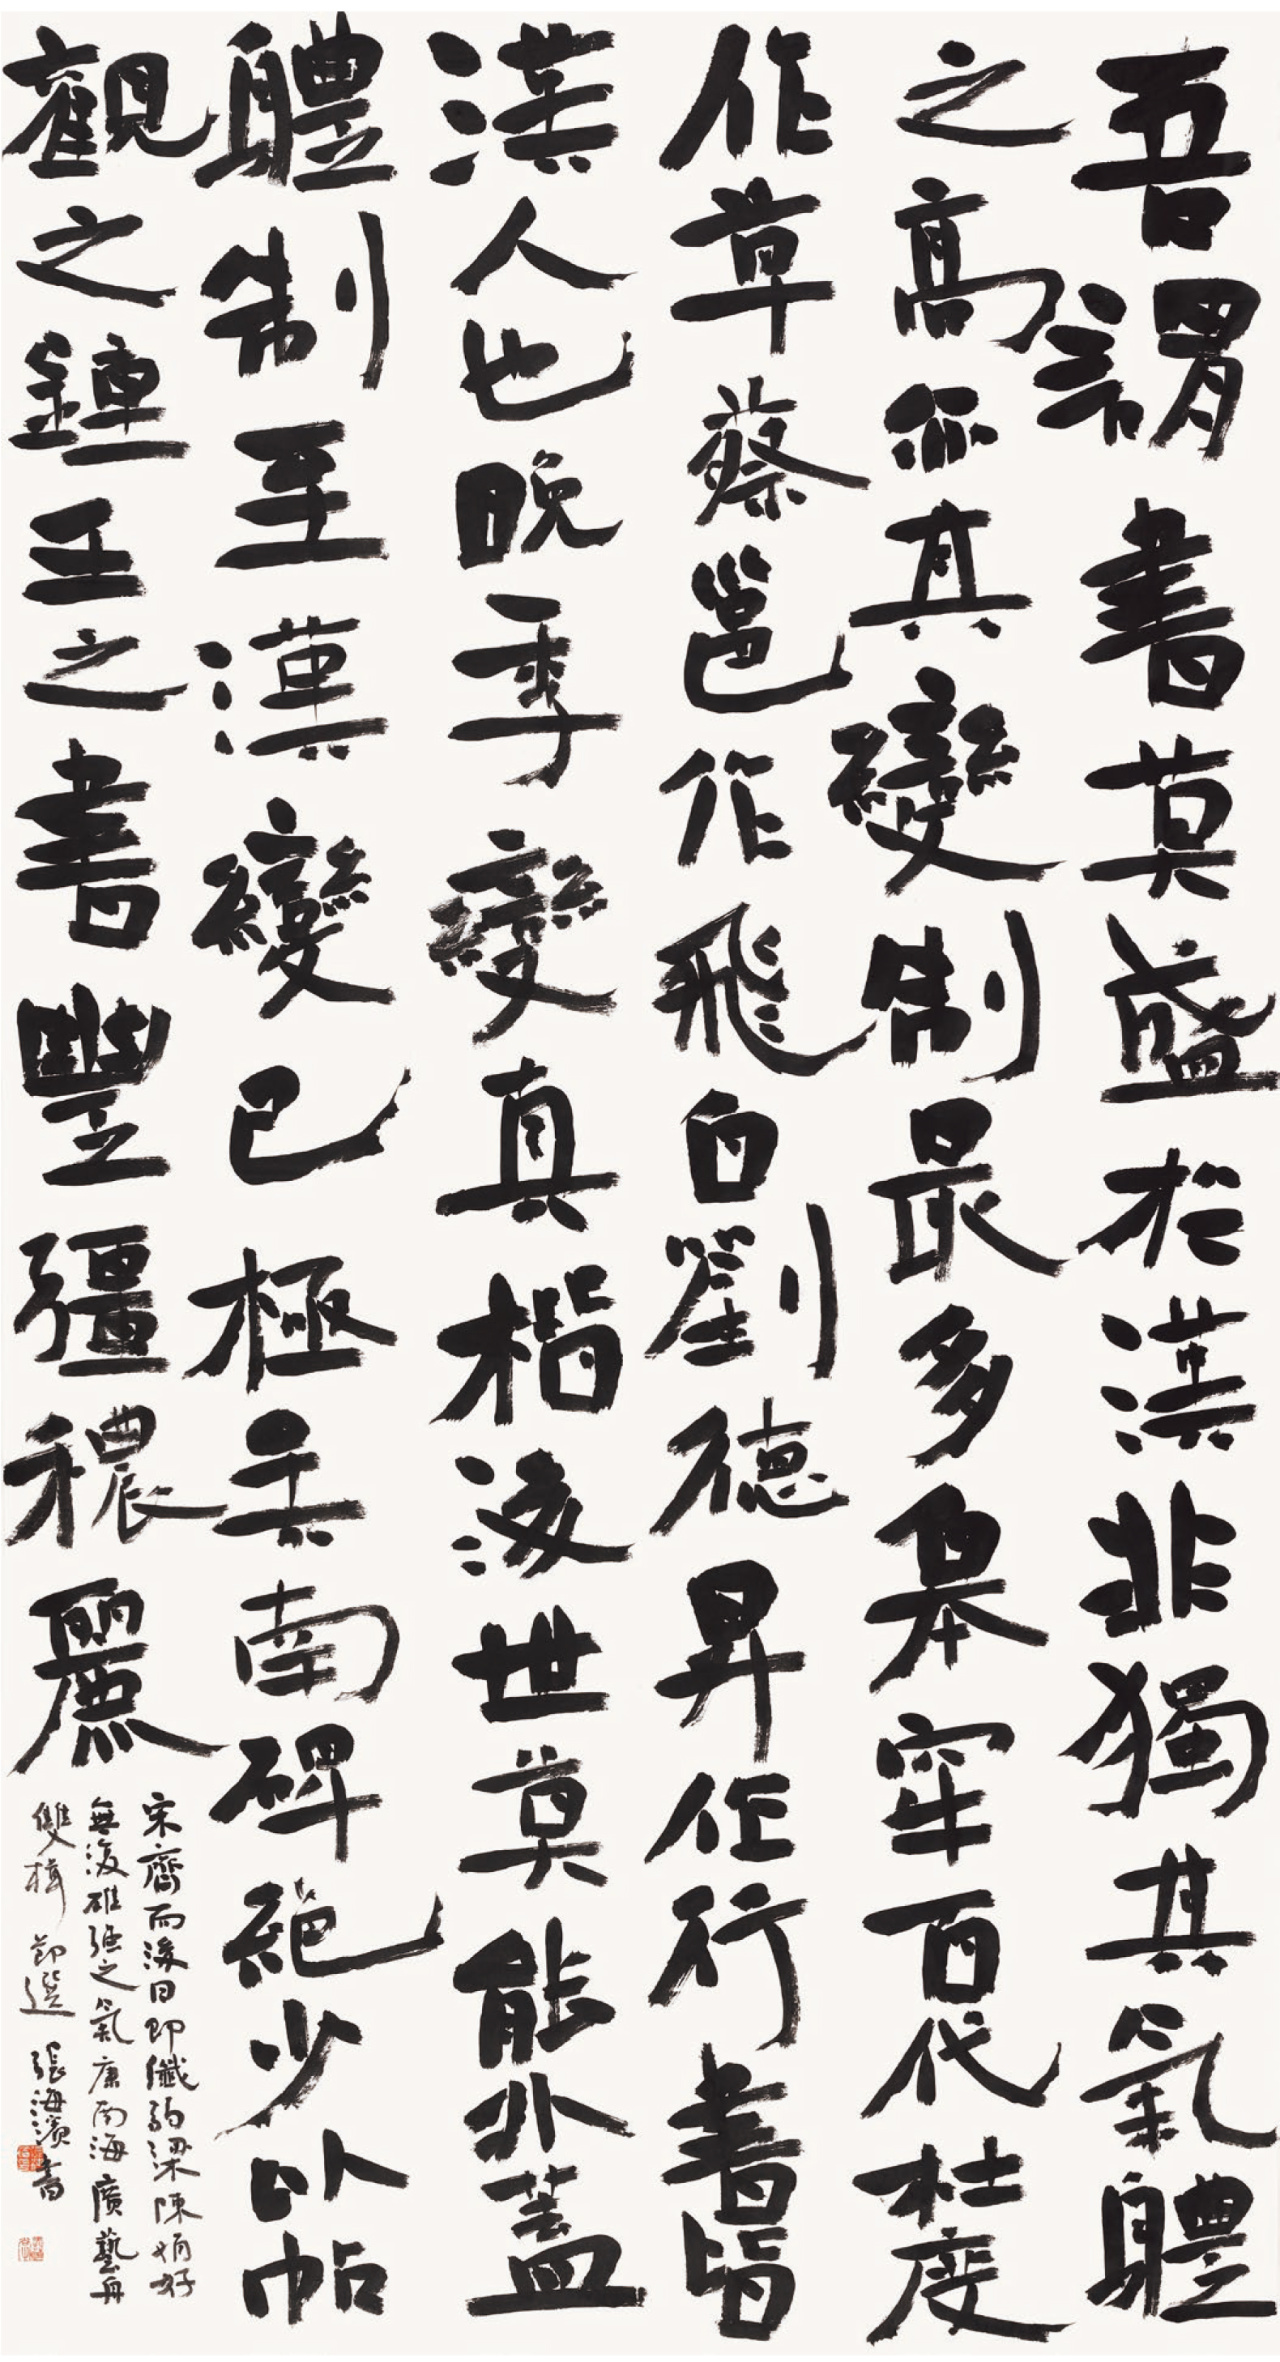 吾謂書莫盛於漢非獨其氣體
之高亦其變制最多皋牢百代杜度
作草蔡邕作飛白劉德昇作行書皆
漢人也晚季變真楷後世莫能外蓋
體制至漢變已極矣南碑絕少以帖
觀之鍾王之書豐彊穠麗
宋齊而後日即纖弱梁陳娟好
無復雄強之氣康南海廣藝舟
雙楫節選張海濱書